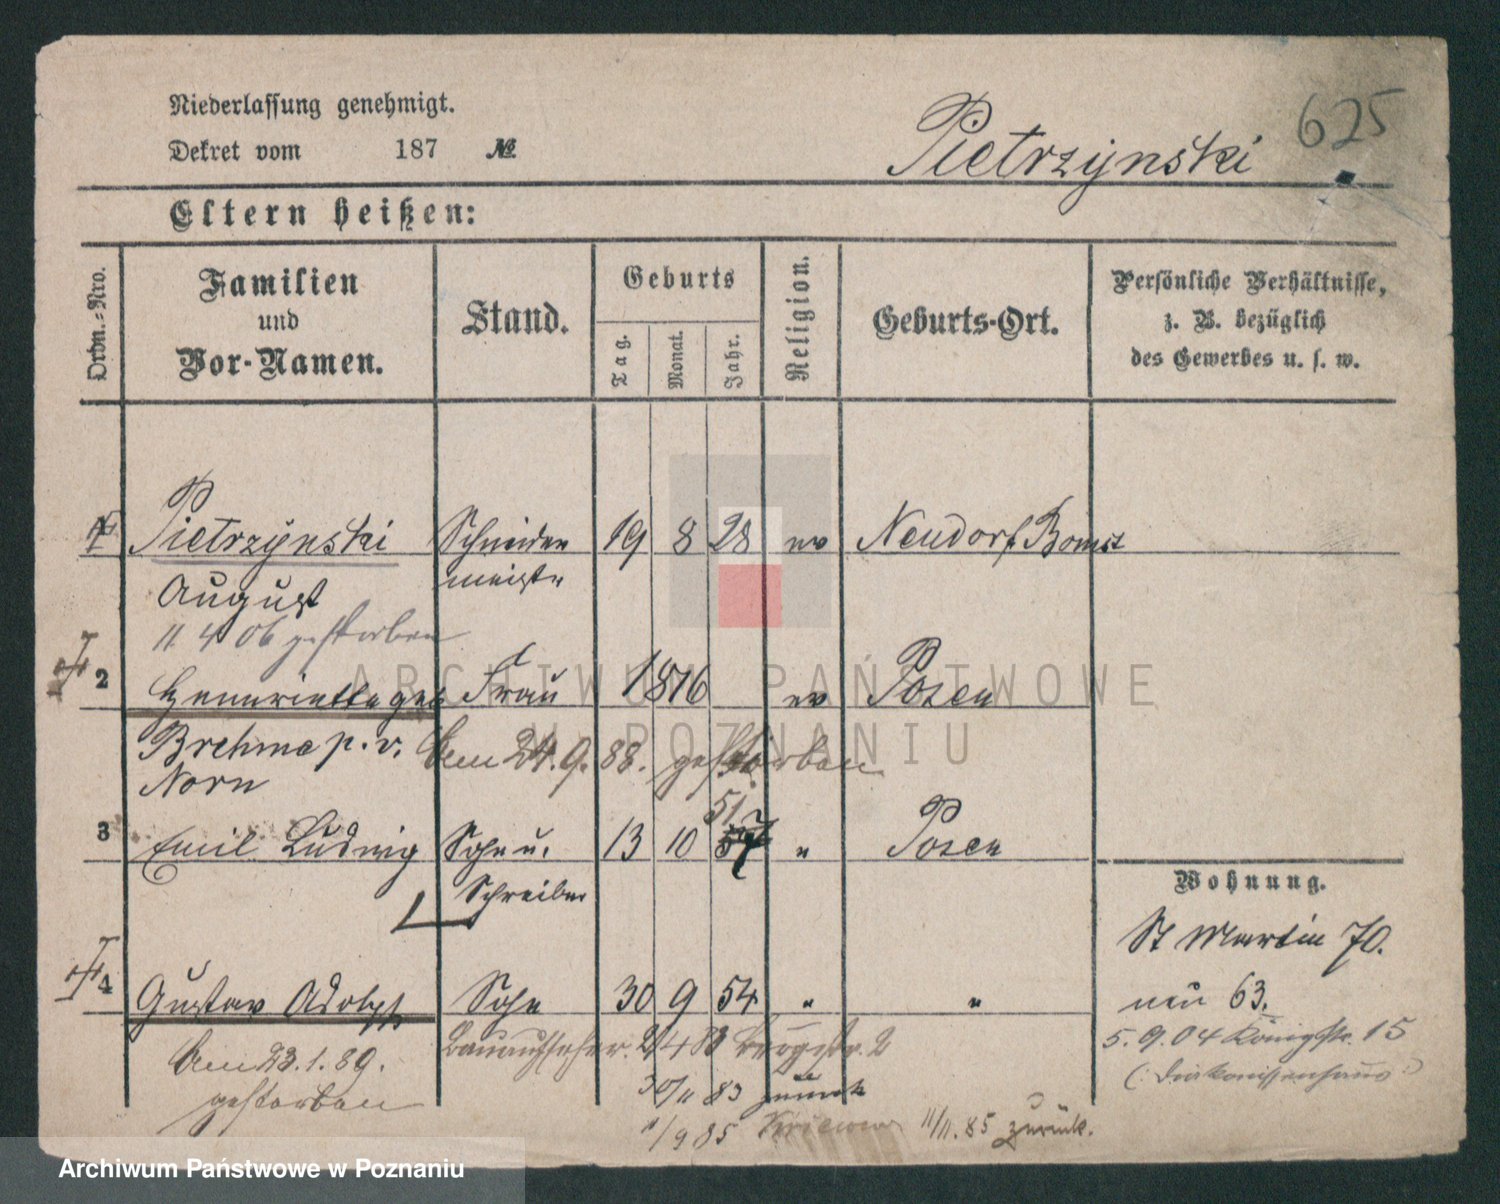 625
Niederlassung genehmigt.
Dekret vom 187 №
Pietrzynski
Eltern heißen:
Ordn.-Nro.
Familien
und
Vor-Namen.
Stand.
Geburts
Tag.
Monat.
Jahr.
Religion.
Geburts-Ort.
Persönliche Verhältnisse,
z. B. bezüglich
des Gewerbes u. s. w.
Pietrzynski Schneider 19 8 28 ev Neudorf Bomst
August meister
11 4 06 gestorben
2 Henriette geb Frau 1816 ev Posen
Brehme p. v. Am 24.9.88. gestorben
Norn
51
3 Emil Ludwig Sohn u. 13 10 57 " Posen
Schreiber
4 Gustav Adolph Sohn 30 9 54 " "
Am 23.1.89.
gestorben
Bauaufseher. Bergstr. 2
30/11 83 zurück
1/9 85 11/11.85 zurück.
Wohnung.
St Martin 70.
neu 63.
5.9.04 Königstr. 15
(: Diakonissenhaus :)
ARCHIWUM PAŃSTWOWE
W POZNANIU
Archiwum Państwowe w Poznaniu